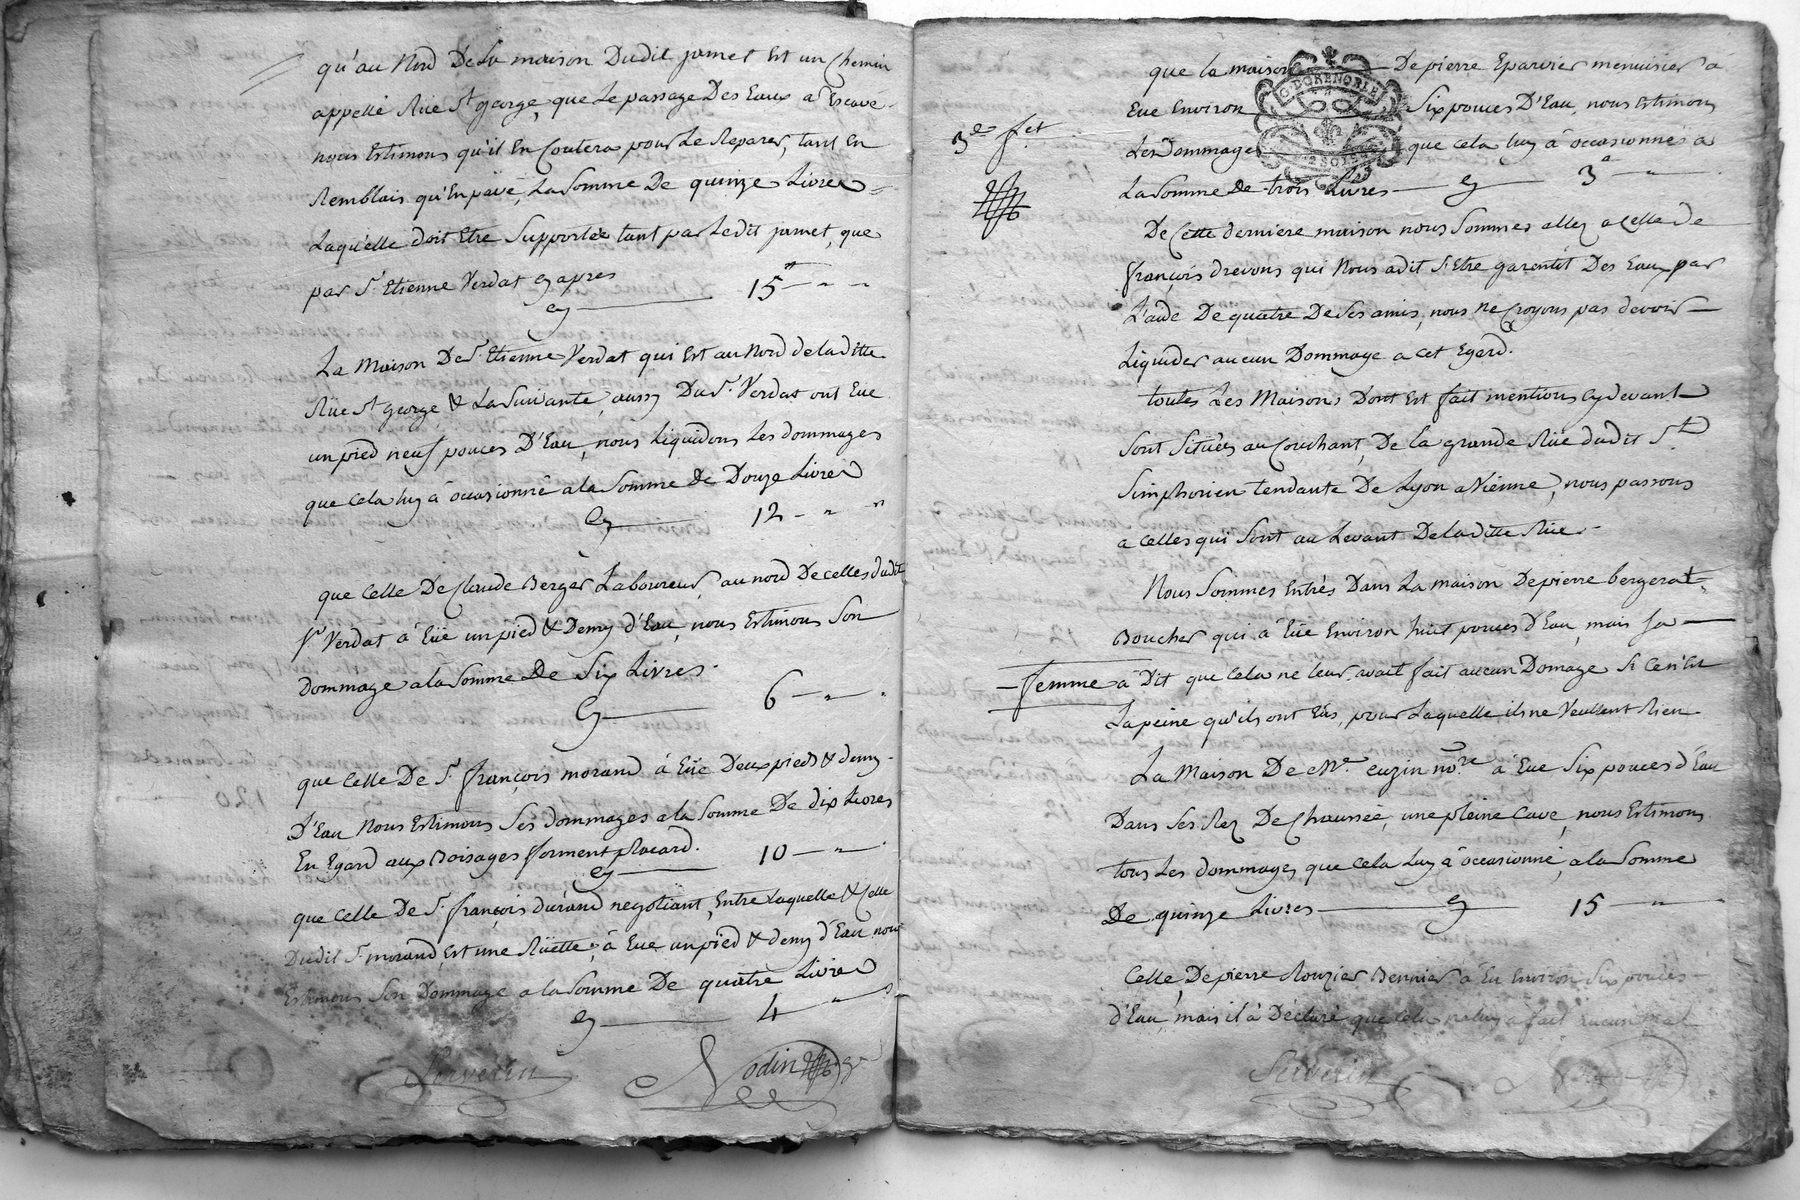 qu'au Nord De la maison Dudit jamet Est un Chemin
appellé Rüe St george, que Le passage Des Eaux a Escavé
nous Estimons qu'il En Coutera pour Le Reparer, tant en
Remblais qu'En pavé, La Somme De quinze Livres
Laquelle doit Etre Supportée tant par Ledit jamet, que
par Sr Etienne Verdat cy apres
cy 15 " "
La Maison De Sr Etienne Verdat qui Est au Nord de la ditte
Rüe St george, & La Suivante, aussy Du Sr Verdat ont Eue
un pied neuf pouces D'Eau, nous Liquidons Les dommages
que cela luy â occasionné a la Somme de Douze Livres
Cy 12 " "
que Celle De Claude Berger Laboureur, au nord De celles dudit
Sr Verdat â Eüe un pied & Demy d'Eau, nous Estimons Son
dommage a la Somme De Six Livres.
Cy 6 " "
que Celle De Sr françois morand â Eüe Deux pieds & demy
D'Eau Nous Estimons Ses dommages a la Somme De dix Livres
En Egard aux Boisages forment placard.
cy 10 " "
que Celle De Sr françois durand negotiant, Entre Laquelle & Celle
Dudit Sr morand, Est une Rüette, â Eue un pied & demy d'Eau nous
Estimons Son Dommage a la Somme De quatre Livres
cy 4 " "
Servelin Nodin
que la maison De pierre Eparvier menuisier â
Eue Environ Six pouces D'Eau, nous Estimons
3e fet
G. D GRENOBLE
2 SOLS
Les Dommages que cela luy â occasionnés a
La Somme De trois Livres cy 3 "
De Cette derniere maison nous Sommes allez a Celle de
françois drevons qui Nous a dit S'Etre garentit Des Eaux par
L'aide De quatre De Ses amis, nous ne Croyons pas devoir
Liquider aucun Dommage a cet Egard.
toutes Les Maisons Dont Est fait mention Cy devant
Sont Situées au Couchant, De la grande Rüe dudit St
Simphorien tendante De Lyon a Vienne, nous passons
a Celles qui Sont au Levant De la ditte Rüe
Nous Sommes Entrés Dans La maison De pierre bergerat
Boucher qui â Eüe Environ huit pouces d'Eau, mais Sa
femme a Dit que Cela ne leur avait fait aucun Domage Si Ce n'Est
La peine qu'ils ont Eüs, pour Laquelle ils ne Veullent Rien
La Maison De Me euzin nore â Eue Six pouces d'Eau
Dans Ses Rez De Chaussée, une pleine Cave, nous Estimons
tous Les dommages que Cela Luy â occasionné, a la Somme
De quinze Livres cy 15 "
Celle De pierre Rouzier Bennier â Eu Environ Six pouces
d'Eau, mais il â Déclaré que Cela ne luy a fait aucun mal
Servelin